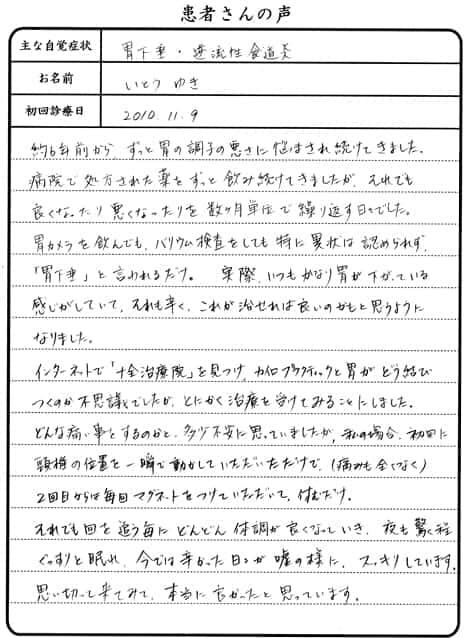 患者さんの声
主な自覚症状 胃下垂・逆流性食道炎
お名前 いとう ゆき
初回診療日 2010.11.9
約6年前から、ずっと胃の調子の悪さに悩まされ続けてきました。
病院で処方された薬をずっと飲み続けてきましたが、それでも
良くなったり悪くなったりを数ヶ月単位で繰り返す日々でした。
胃カメラを飲んでも、バリウム検査をしても特に異状は認められず、
「胃下垂」と言われるだけ。 実際、いつもかなり胃が下がっている
感じがしていて、それも辛く、これが治せれば良いのかもと思うように
なりました。
インターネットで「十全治療院」を見つけ、カイロプラクティックと胃がどう結び
つくのか不思議でしたが、とにかく治療を受けてみることにしました。
どんな痛い事をするのかと、多少不安に思っていましたが、私の場合、初回に
頸椎の位置を一瞬で動かしていただいただけで、(痛みも全くなく)
2回目からは毎回マグネットをつけていただいて、休むだけ。
それでも回を追う毎にどんどん体調が良くなっていき、夜も驚く程
ぐっすりと眠れ、今では辛かった日々が嘘の様に、スッキリしています。
思い切って来てみて、本当に良かったと思っています。